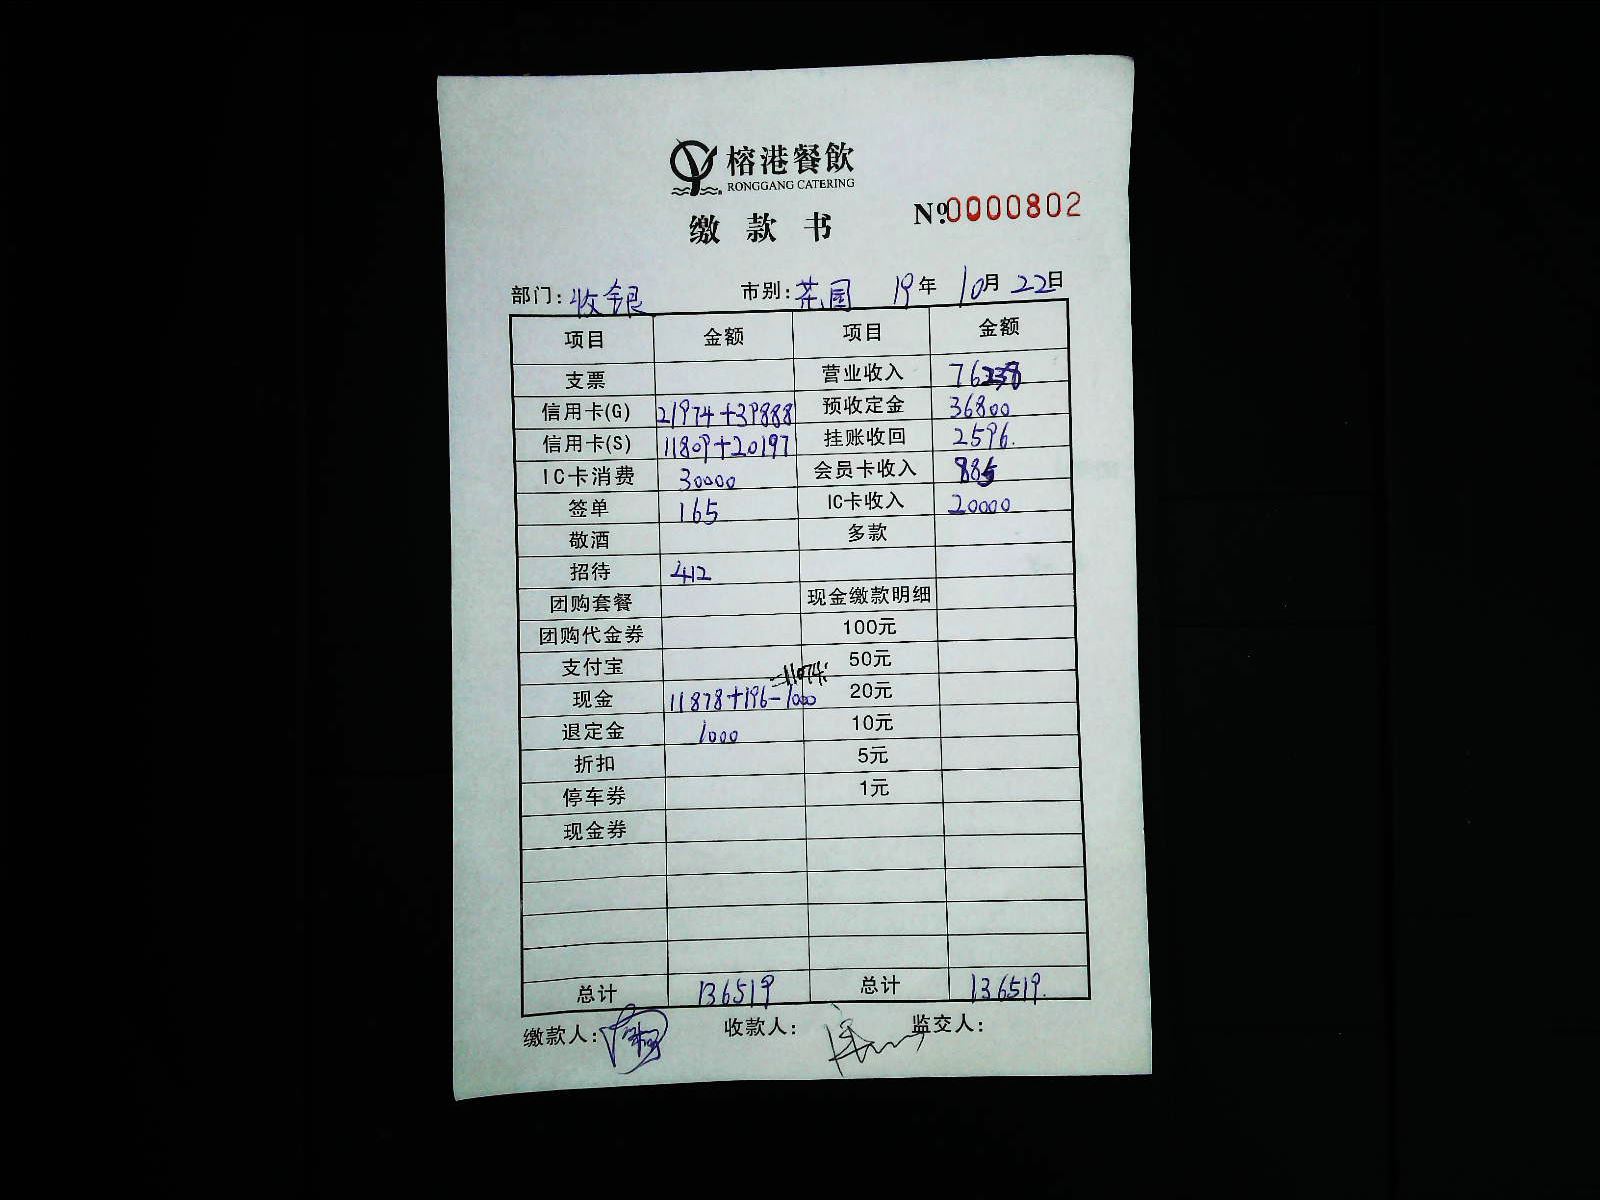 榕港餐飲
RONGGANG CATERING
缴款书
№:0000802
部门:收银 市别:菜园 19年10月22日
项目 金额 项目 金额
支票 营业收入 76238
信用卡(G) 21974+39888 预收定金 36800
信用卡(S) 11809+20197 挂账收回 2596.
IC卡消费 30000 会员卡收入 885
签单 165 IC卡收入 20000
敬酒 多款
招待 412
团购套餐 现金缴款明细
团购代金券 100元
支付宝 50元
=11074.
现金 11878+196-1000 20元
退定金 1000 10元
折扣 5元
停车券 1元
现金券
总计 136519 总计 136519.
缴款人: 收款人: 监交人: